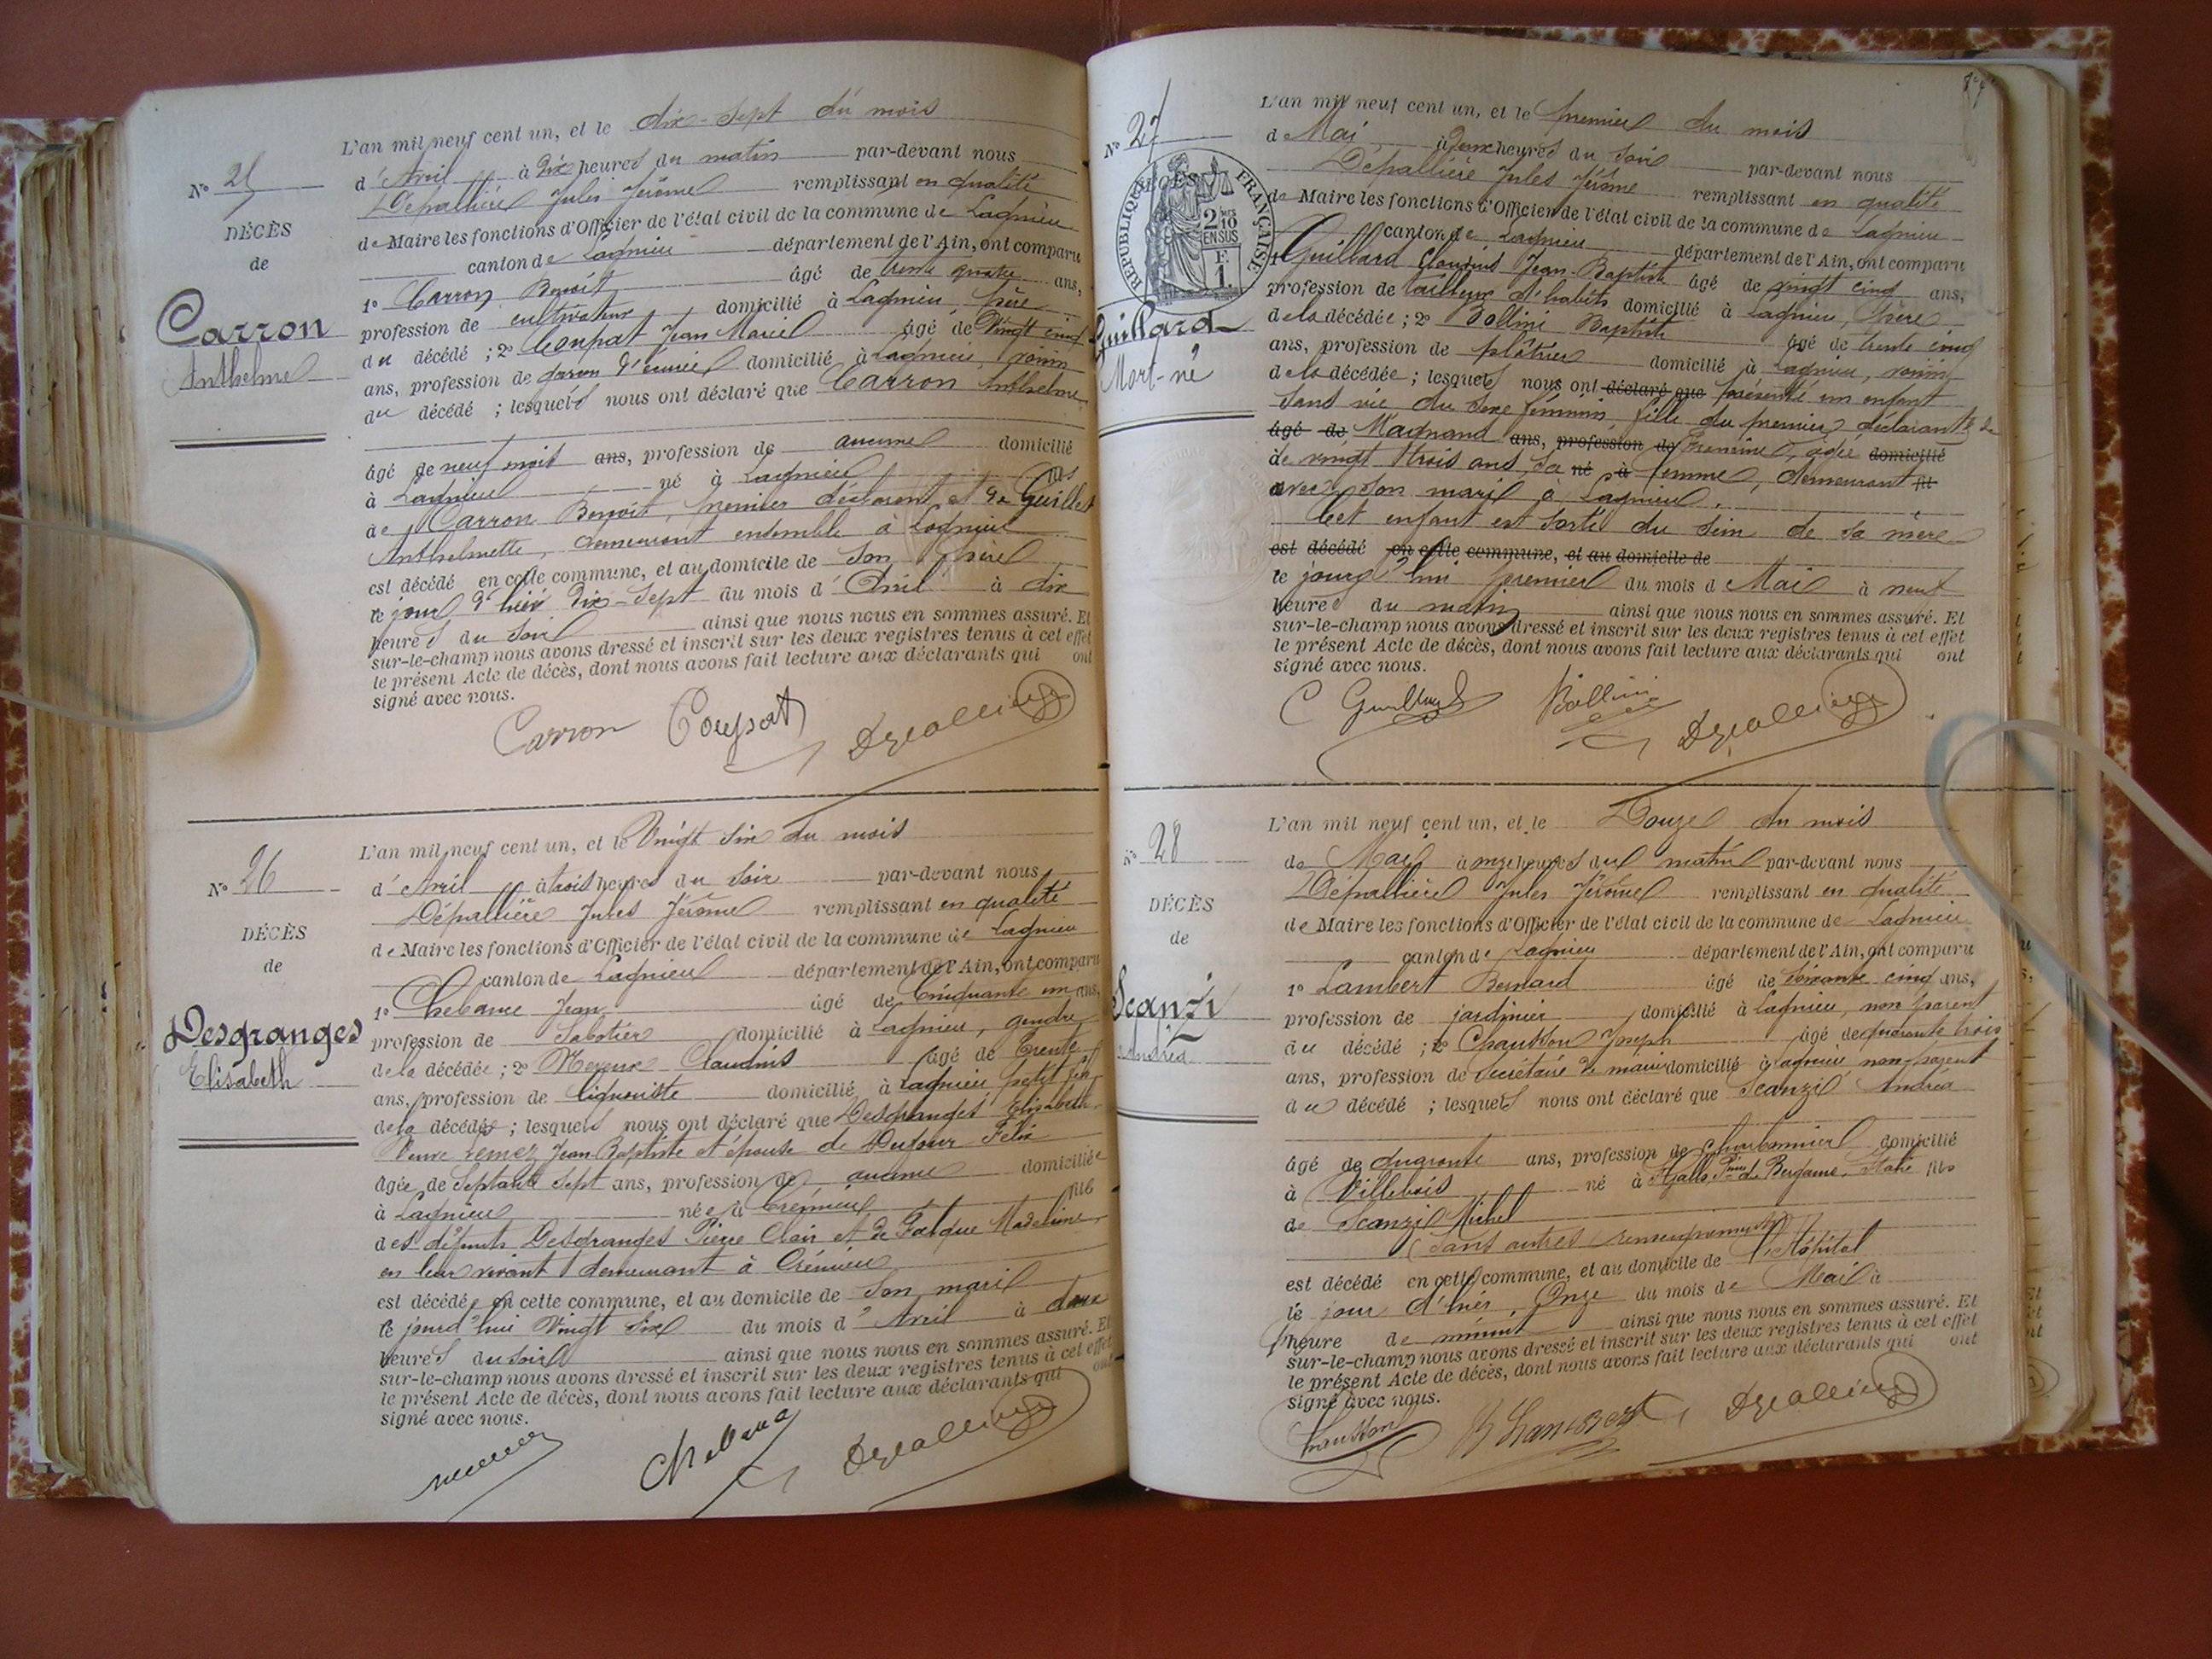 N° 25
DÉCÈS
de
Carron
Anthelme
L'an mil neuf cent un, et le dix-sept du mois
d'Avril à dix heures du matin par-devant nous
Dépallière Jules Jérôme remplissant en qualité
de Maire les fonctions d'Officier de l'état civil de la commune de Lagnieu
canton de Lagnieu département de l'Ain, ont comparu
1° Carron Benoit âgé de trente quatre ans,
profession de cultivateur domicilié à Lagnieu, père
du décédé ; 2° Coupat Jean Marie âgé de Vingt cinq
ans, profession de garçon d'écurie domicilié à Lagnieu, voisin
du décédé ; lesquels nous ont déclaré que Carron Anthelme
âgé de neuf mois ans, profession de aucune domicilié
à Lagnieu né à Lagnieu fils
de Carron Benoit, premier déclarant, et de Guillet
Anthelmette, demeurant ensemble à Lagnieu
est décédé en cette commune, et au domicile de son père
le jour d'hier dix-sept du mois d'Avril à dix
heures du soir ainsi que nous nous en sommes assuré. Et
sur-le-champ nous avons dressé et inscrit sur les deux registres tenus à cet effet
le présent Acte de décès, dont nous avons fait lecture aux déclarants qui ont
signé avec nous.
Carron Coupat Depallière
N° 26
DÉCÈS
de
Desgranges
Elisabeth
L'an mil neuf cent un, et le Vingt six du mois
d'Avril à trois heures du soir par-devant nous
Dépallière Jules Jérôme remplissant en qualité
de Maire les fonctions d'Officier de l'état civil de la commune de Lagnieu
canton de Lagnieu département de l'Ain, ont comparu
1° Jean âgé de Cinquante un ans,
profession de Sabotier domicilié à Lagnieu, gendre
de la décédée ; 2° Claudius âgé de Trente
ans, profession de liquoriste domicilié à Lagnieu petit fils
de la décédée ; lesquels nous ont déclaré que Desgranges Elisabeth
Veuve Jean Baptiste et épouse de Dufour Félix
âgée de Septante sept ans, profession de aucune domiciliée
à Lagnieu née à Crémieu fille
des défunts Desgranges Pierre Clair et de Falque Madeleine
en leur vivant demeurant à Crémieu
est décédée en cette commune, et au domicile de son mari
le jourd'hui Vingt six du mois d'Avril à deux
heures du soir ainsi que nous nous en sommes assuré. Et
sur-le-champ nous avons dressé et inscrit sur les deux registres tenus à cet effet
le présent Acte de décès, dont nous avons fait lecture aux déclarants qui ont
signé avec nous.
Depallière
N° 27
DÉCÈS
RÉPUBLIQUE FRANÇAISE
2/10
EN SUS
F.
1.
Guillard
Mort-né
L'an mil neuf cent un, et le premier du mois
de Mai à deux heures du soir par-devant nous
Dépallière Jules Jérôme remplissant en qualité
de Maire les fonctions d'Officier de l'état civil de la commune de Lagnieu
canton de Lagnieu département de l'Ain, ont comparu
1° Guillard Claudius Jean-Baptiste âgé de vingt cinq ans,
profession de tailleur d'habits domicilié à Lagnieu, père
de la décédée ; 2° Bollini Baptiste âgé de trente cinq
ans, profession de plâtrier domicilié à Lagnieu, voisin
de la décédée ; lesquels nous ont déclaré que présenté un enfant
sans vie du sexe féminin, fille du premier déclarant & de
âgé de Magnand ans, profession de âgée domicilié
de vingt trois ans, sa né à femme, demeurant
avec son mari à Lagnieu.
Cet enfant est sorti du sein de sa mère
est décédé en cette commune, et au domicile de
le jourd'hui premier du mois de Mai à neuf
heures du matin ainsi que nous nous en sommes assuré. Et
sur-le-champ nous avons dressé et inscrit sur les deux registres tenus à cet effet
le présent Acte de décès, dont nous avons fait lecture aux déclarants qui ont
signé avec nous.
C Guillard Bollini Depallière
N° 28
DÉCÈS
de
Scanzi
Andréa
L'an mil neuf cent un, et le Douze du mois
de Mai à onze heures du matin par-devant nous
Dépallière Jules Jérôme remplissant en qualité
de Maire les fonctions d'Officier de l'état civil de la commune de Lagnieu
canton de Lagnieu département de l'Ain, ont comparu
1° Lambert Bernard âgé de soixante cinq ans,
profession de jardinier domicilié à Lagnieu, non parent
du décédé ; 2° Chausson Joseph âgé de quarante trois
ans, profession de Secrétaire de mairie domicilié à Lagnieu non parent
du décédé ; lesquels nous ont déclaré que Scanzi Andréa
âgé de quarante ans, profession de Charbonnier domicilié
à Villebois né à de Bergame, Italie fils
de Scanzi Michel
(Sans autres renseignements)
est décédé en cette commune, et au domicile de l'Hôpital
le jour d'hier, Onze du mois de Mai à
heure de minuit ainsi que nous nous en sommes assuré. Et
sur-le-champ nous avons dressé et inscrit sur les deux registres tenus à cet effet
le présent Acte de décès, dont nous avons fait lecture aux déclarants qui ont
signé avec nous.
Chausson B Lambert Depallière